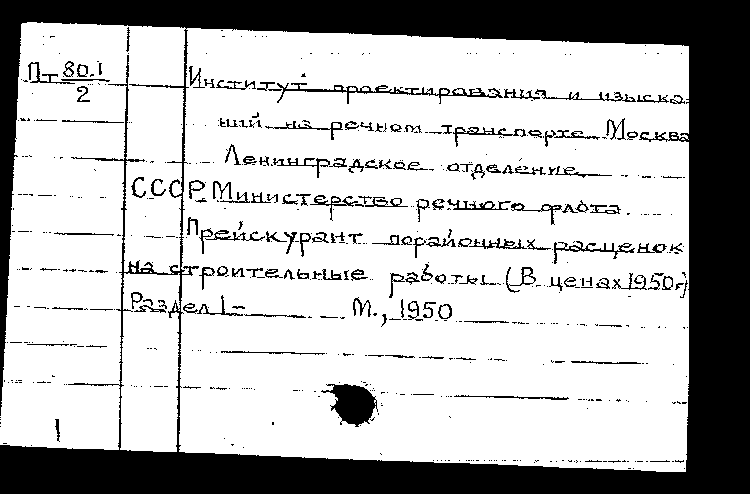 Пт 80.1
2
Институт проектирования и изыска
ний на речном транспорте. Москва
Ленинградское отделение.
СССР. Министерство речного флота.
Прейскурант порайонных расценок
на строительные работы (В ценах 1950г)
Раздел 1- М., 1950
1